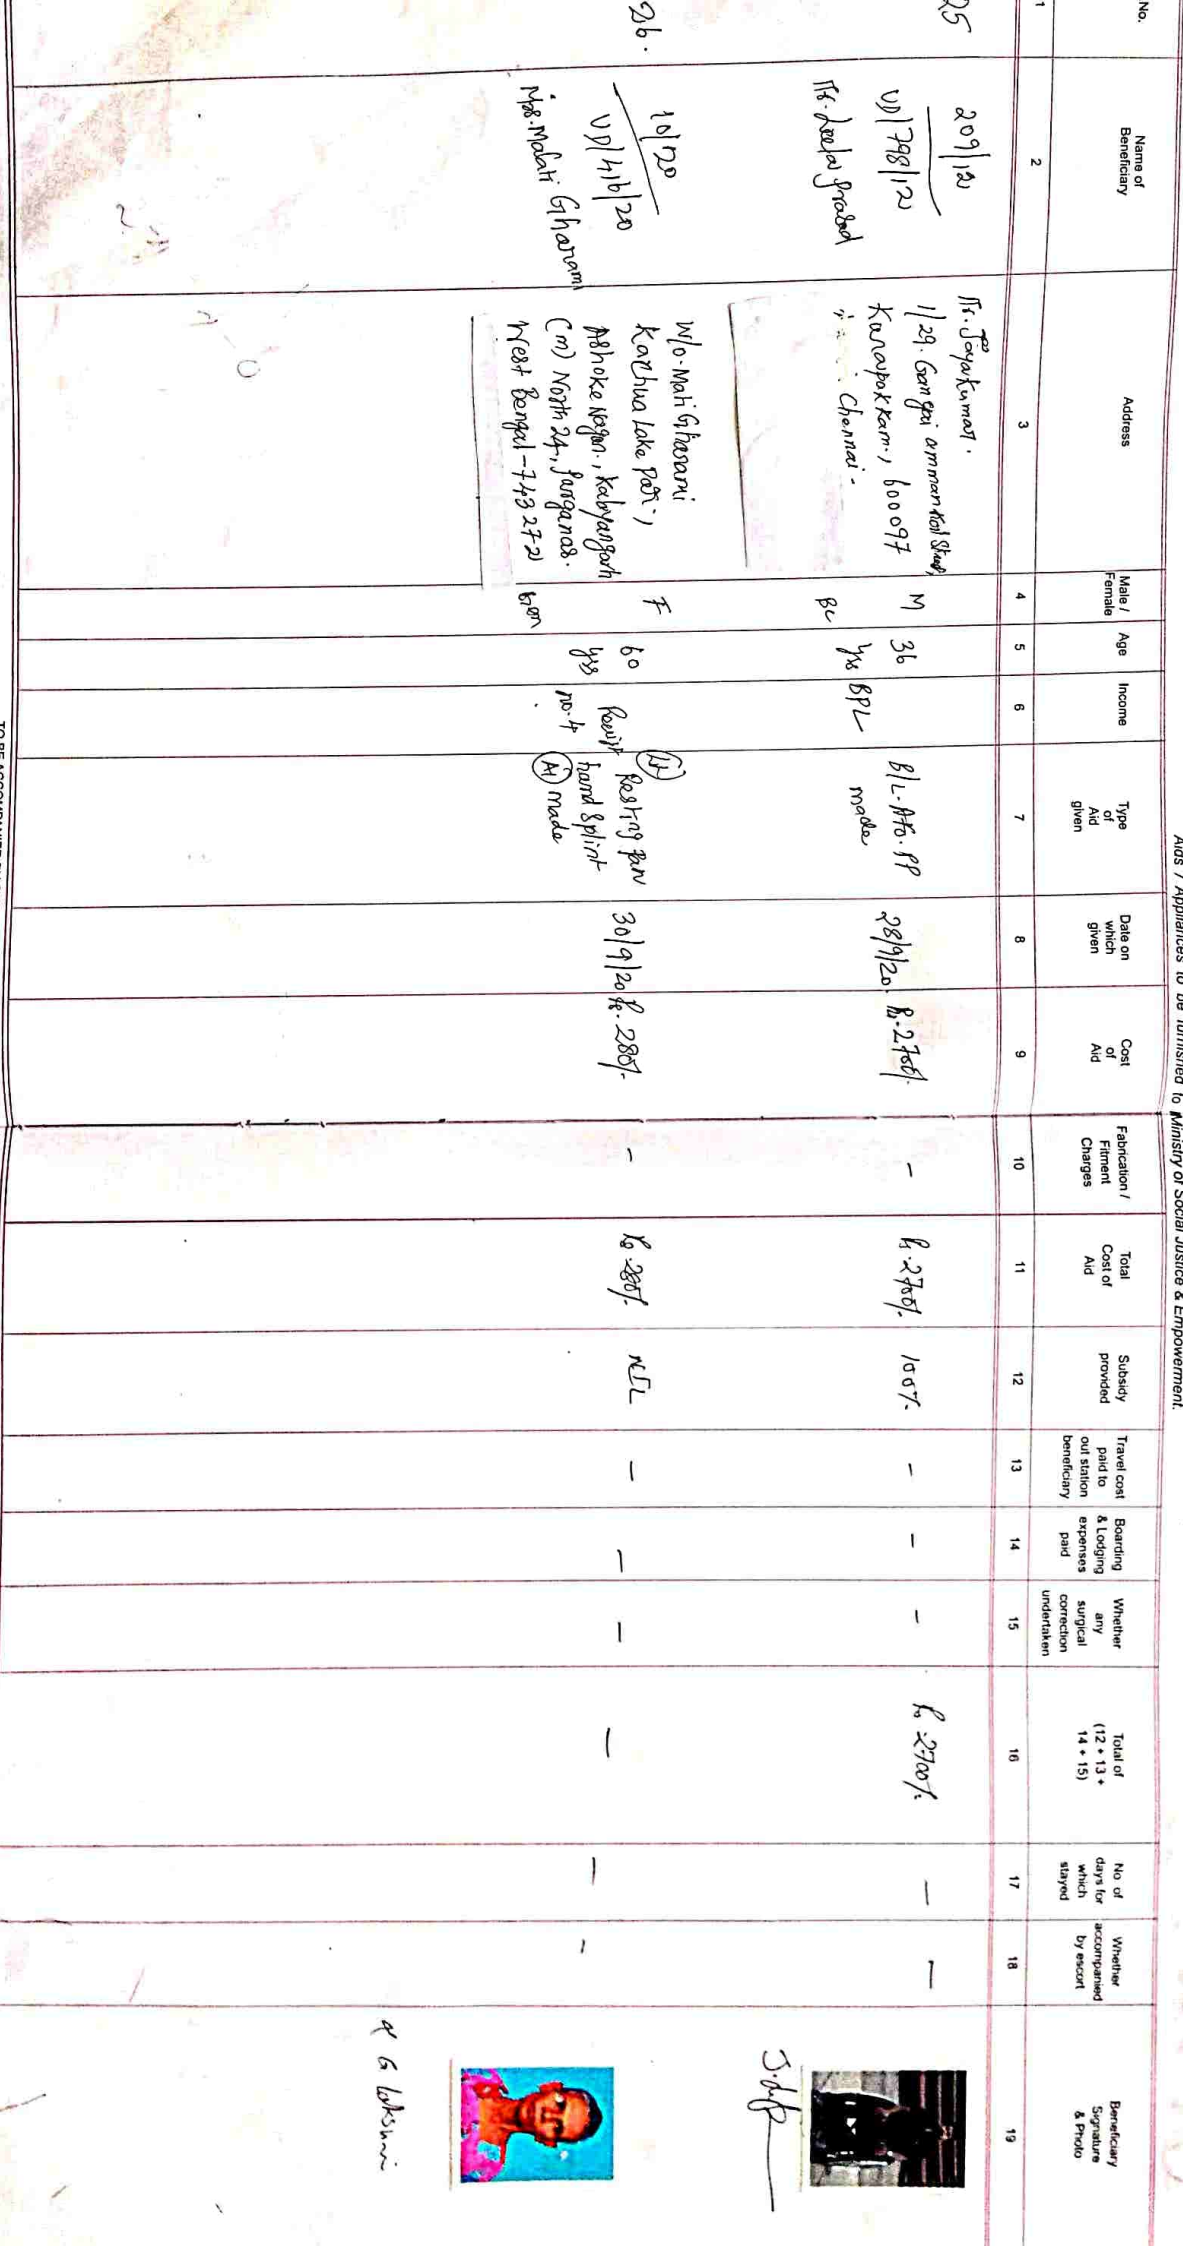 Aids / Appliances to be furnished to Ministry of Social Justice & Empowerment.
No.
Name of
Beneficiary
Address
Male /
Female
Age
Income
Type
of
Aid
given
Date on
which
given
Cost
of
Aid
Fabrication /
Fitment
Charges
Total
Cost of
Aid
Subsidy
provided
Travel cost
paid to
out station
beneficiary
Boarding
& Lodging
expenses
paid
Whether
any
surgical
correction
undertaken
Total of
(12 + 13 +
14 + 15)
No. of
days for
which
stayed
Whether
accompanied
by escort
Beneficiary
Signature
& Photo
1 2 3 4 5 6 7 8 9 10 11 12 13 14 15 16 17 18 19
25
209/12
UD/798/12
Prasad
Jayakumar.
1/29. amman Koil Street,
Karapakkam., 600097
Chennai -
M
BC
36
yrs
BPL
B/L. AFO. PP
made
28/9/20.
Rs. 2700/-
-
Rs. 2700/-
100%
-
-
-
Rs. 2700/-
-
-
26.
10/20
UD/416/20
Mrs. Malati Gharami
W/o. Mati Gharami
Kachua Lake Para,
Ashoke Nagar., Kalyangarh
(m) North 24, Parganas.
West Bengal - 743272
F
Gen
60
yrs
no. 4
Resting Pan
hand Splint
made
30/9/20
Rs. 280/-
-
Rs. 280/-
NIL
-
-
-
-
-
-
G Lakshmi